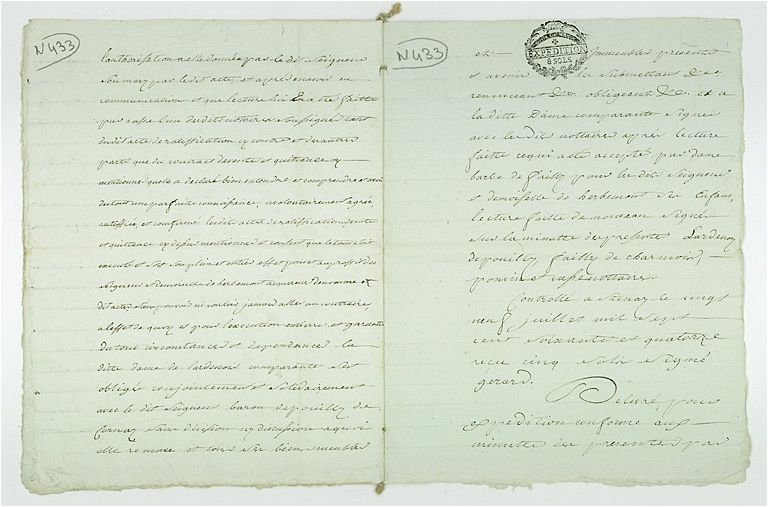 N433
l'authorisation a elle donnée par le dit Seigneur
Son mary par le dit acte, et après en avoir eu
communication et que lecture luy En a été faitte
par l'un de dits notaires Soussigné tant
du dit acte de ratiffication cy contre et d'autres
parts que du contract de vente et quittance y
mentionné quelle a declaré bien entendre et comprendre et avoir
du tout une parfaite connoissance, a volontairement agréé
ratiffié, et confirmé les dits actes de ratiffication, vente
et quittance cy dessus mentionnés et consent que le tout soit
executé et sorte Son plein et entier effet pour et au proffit des
Seigneur et demoiselle de herbemont
dit acte, sans pouvoir ni vouloir jamais aller au contraire,
a l'effet de quoy et pour l'execution entiere et garantie
du tout circonstances et dependances la
ditte dame de lardenois comparante s'est
obligé conjointement et Solidairement
avec le dit Seigneur baron depouilly de
Cornay Sans division ny discussion a quoi
elle renonce et tous Ses biens meubles
N433
EXPEDITION
8 SOLS
et immeubles presents
et avenir les Submettant &c
renonceant &c obligeant &c et a
la ditte Dame comparante Signé
avec les dits nottaires apres lecture
faitte ce qui a été accepté par dame
barbe de failly pour les dits Seigneur
et demoiselle de herbemont Ses Enfans,
lecture faitte de nouveau Signé
Sur la minutte des presentes Lardenoy
depouilly failly de charmois,
ponsin et nottaire.
Controllé a Stenay le vingt
neuf juillet mil Sept
cent soixante et quatorze
reçu cinq sols Signé
gerard.
Delivré, pour
expedition conforme aux
minutte des presentes par